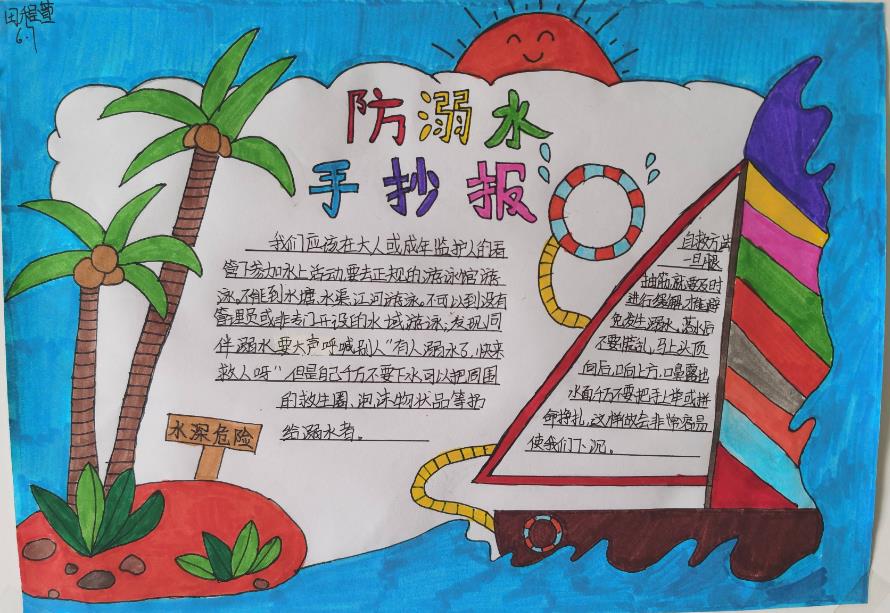 田程萱
6.7
防溺水
手抄报
我们应该在大人或成年监护人的看
管下参加水上活动要去正规的游泳馆游
泳。不能到水塘、水渠、江河游泳。不可以到没有
管理员或非专门开设的水域游泳；发现同
伴溺水要大声呼喊别人“有人溺水了，快来
救人呀”但是自己千万不要下水可以把周围
的救生圈、泡沫物状品等扔
给溺水者。
水深危险
自救方法
一旦腿
抽筋就要及时
进行缓解,才能避
免发生溺水。落水后
不要慌乱,马上头顶
向后,口向上方,口鼻露出
水面千万不要把手上举或拼
命挣扎,这样做会非常容易
使我们下沉。